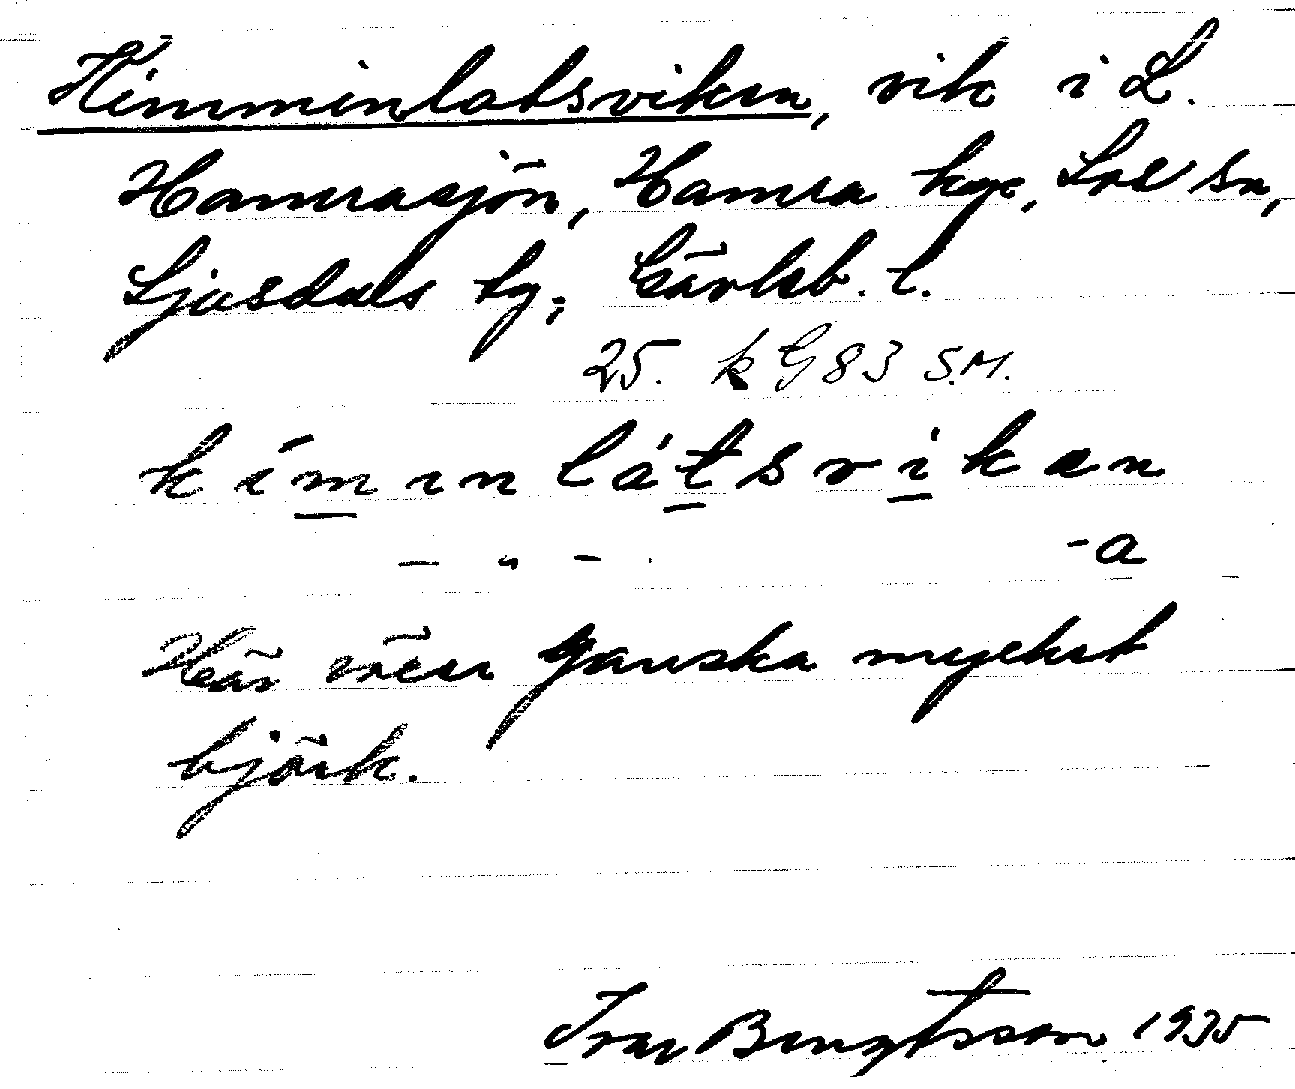 Himminlatsviken, vik i L.
Hamrasjön, Hamra kgr, Los sn,
Ljusdals tg, Gävleb. l.
25. k G 83 S.M.
híminlátsvikæn
- " - . -a
Här växer ganska mycket
björk.
Ivar Bengtsson 1935